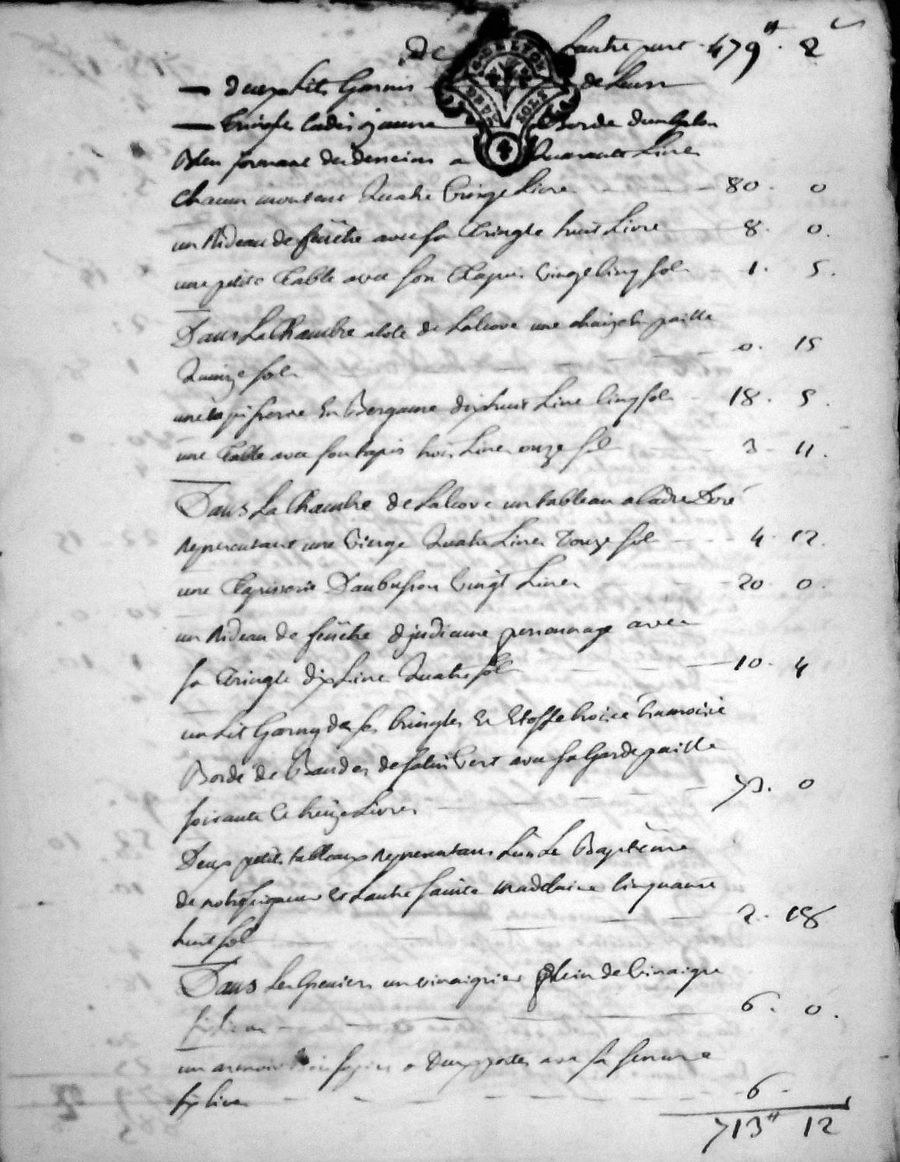 De Lautre part 479# . 2
deux Lits Garnis de Leurs
tringle Cadis jaune Bordé d'un Galon
Bleu formant des desseins a Quarante Livres
Chacun montant Quatre Vingt Livre 80 . 0
un Rideau de fenêtre avec sa Tringle huit Livre 8 . 0
une petite Table avec son Tapis Vingt Cinq sols 1 . 5
Dans La Chambre a Coté de Lalcove une chaize de paille
Quinze sols 0 . 15
une tapisserie En Bergame dixhuit Livre Cinq sols 18 . 5
une Table avec son tapis trois Livres onze sol 3 . 11
Dans La Chambre de Lalcove un tableau a Cadre Doré
Representant une Vierge Quatre Livres Douze sol 4 . 12
une Tapisserie Daubusson Vingt Livres 20 . 0
un Rideau de fenêtre d'indienne personnage avec
sa Tringle dix Livre Quatre sols 10 . 4
un Lit Garny de ses tringles En Etoffe
Bordé de Bandes de satin Vert avec sa Garde paille
soixante et treize Livres 73 . 0
Deux petits tableaux Representans Lun Le Baptême
de notre seigneur et Lautre sainte Madelaine Cinquante
huit sol 2 . 18
Dans Les Greniers un vinaigrier plein de Vinaigre
six Livres 6 . 0
un armoir bois sapin a Deux portes avec sa serrure
six Livres 6
713# 12